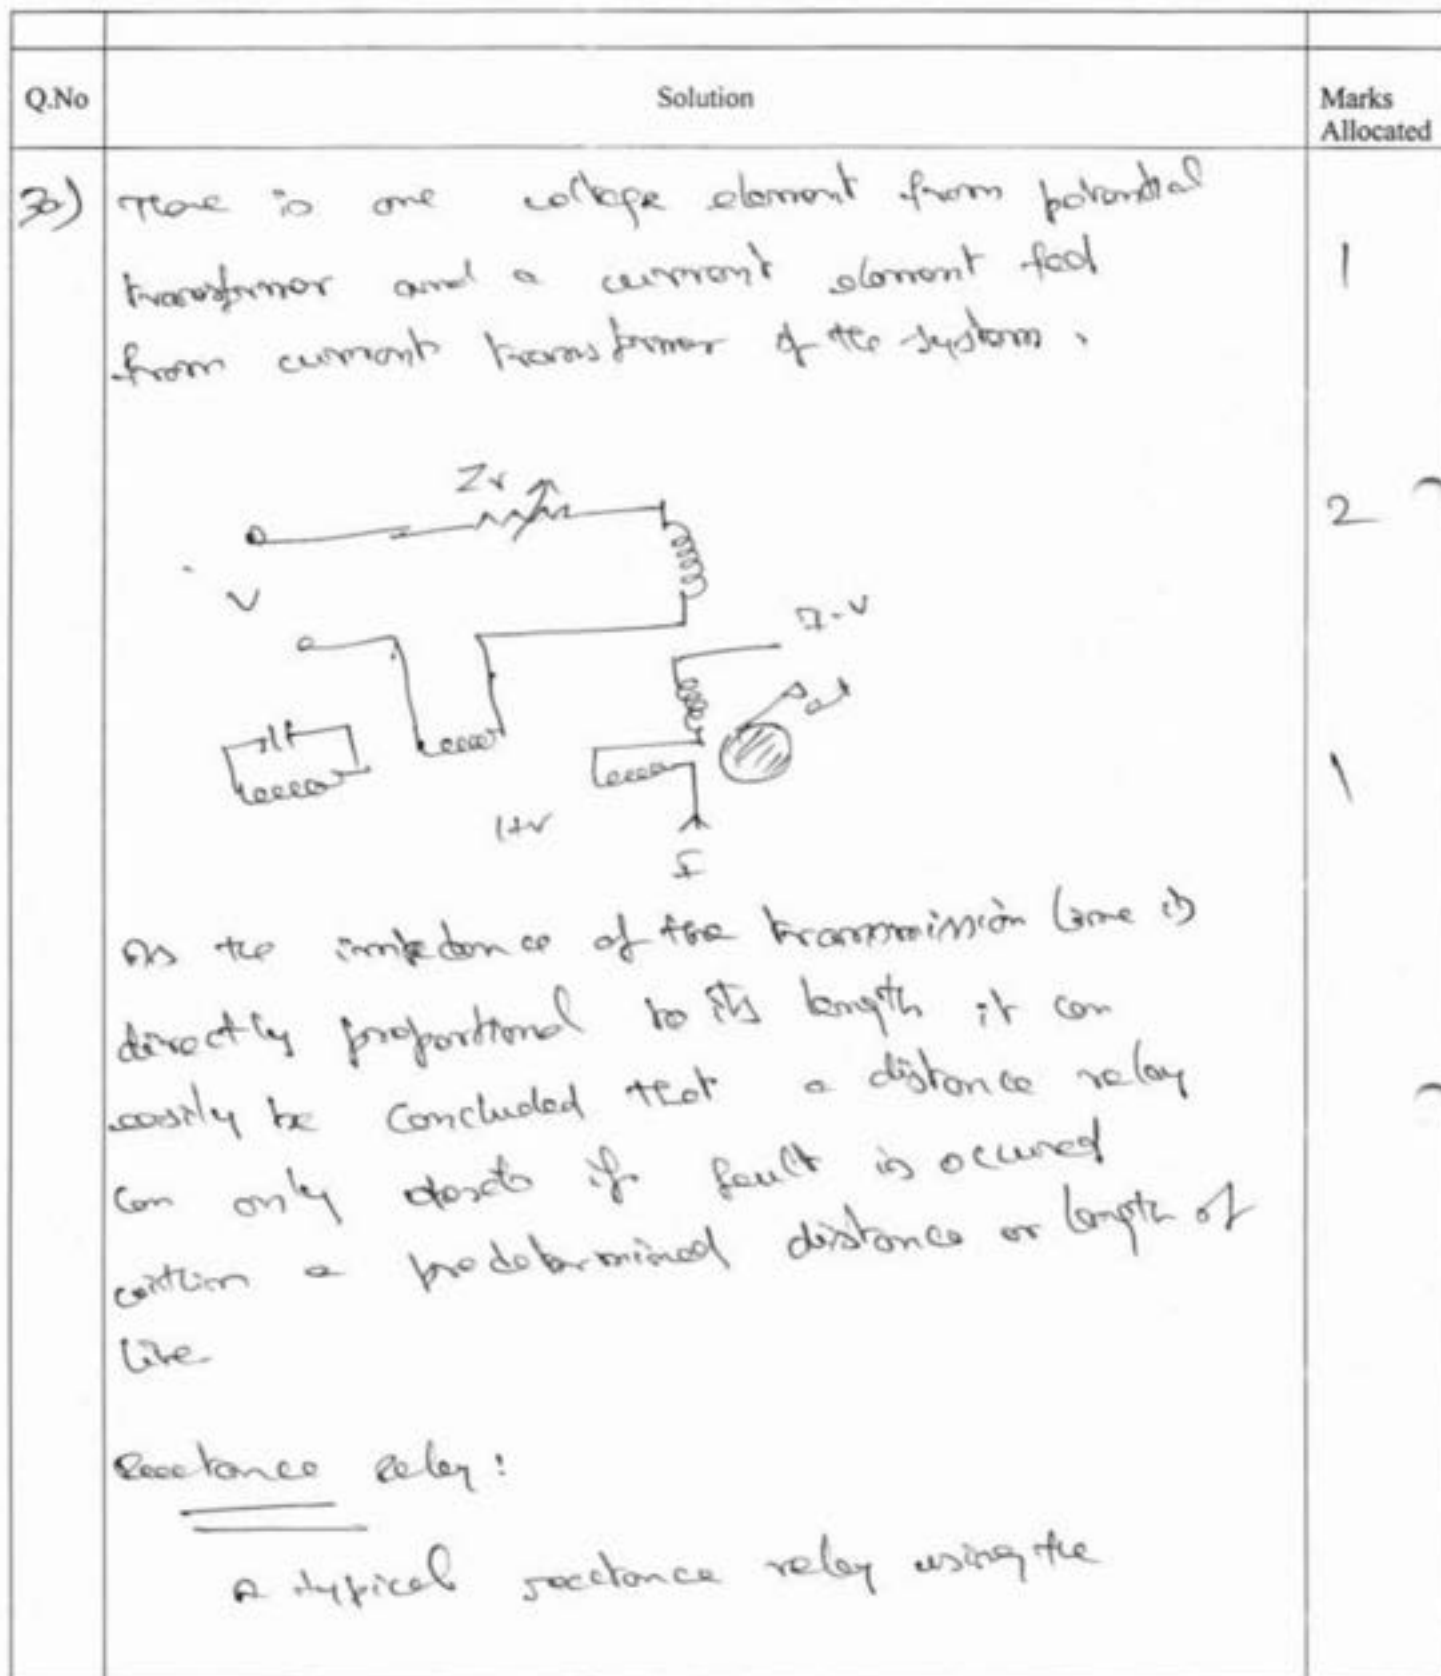 Q.No Solution Marks
Allocated
3a) There is one voltage element from potential
transformer and a current element fed 1
from current transformer of the system.
Zr
2
V
I
1
As the impedance of the transmission line is
directly proportional to its length it can
easily be concluded that a distance relay
can only if fault is occured
within a predetermined distance or length of
line
Reactance Relay:
A typical reactance relay using the